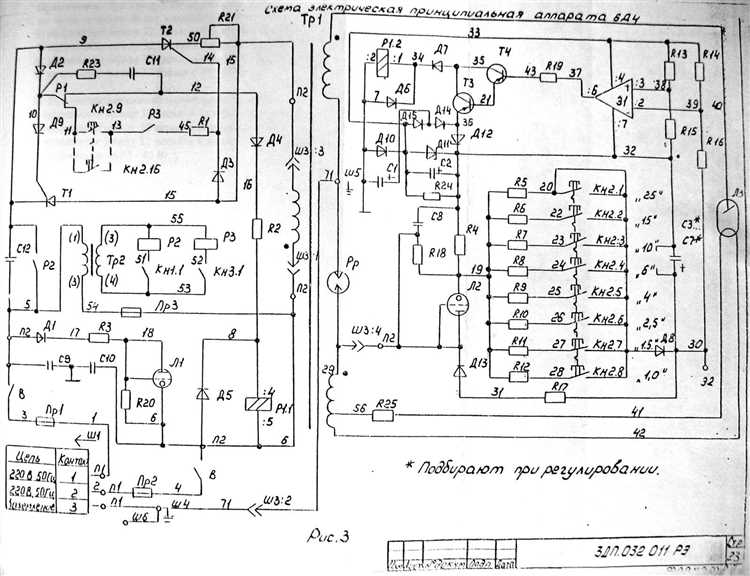 Схема электрическая принципиальная аппарата 6Д4
Тр1
33
9 Т2 50 R21
14 15
Д2 R23 C11
Р1 12
Кн2.9
10 Д9 11 13 Р3 45 R1
Кн2.16
Д4
16
Т1 15 Д3
П2
Ш3:3
Р1.2 :2 :1 34 Д7 35 Т4
Т3 43 R19 37
7 Д6 21
Д15 Д14 36
Д10 Д11 Д12
C1 C2
R24
:6 :4 :3 38
31 :2 39
:7
32
R13 R14
R15 R16
40
Л3
71 Ш5
55
(1) (3) Р2 Р3
Тр2 51 52
Кн1.1 Кн3.1
(3) (4) 53
C12 Р2
5 54 Пр3
R2
Ш3:1
Рр
C8
R18 R4
19
Л2
R5 20 Кн2.1 „25"
R6 22 Кн2.2 „15"
R7 23 Кн2.3 „10"
R8 24 Кн2.4 „6"
R9 25 Кн2.5 „4"
R10 26 Кн2.6 „2,5"
R11 27 Кн2.7 „1.5"
R12 28 Кн2.8 „1,0"
C3*
C7*
Д8 30
32
П2 Д1 17 R3 18
C9 C10 Л1
R20
6
8
Д5 Р1.1 :4 :5
П2 6
Ш3:4 П2
Д13
31 R17
29
56 R25 41
42
В
3 Пр1 1
Ш1
Цепь Контак
220В, 50Гц 1 П1
220В, 50Гц 2 2 П1 Пр2 4 В
3 П1 Ш4 71 Ш3:2
Ш6
* Подбирают при регулировании.
Рис.3
ЗДП.032 011 РЭ
23